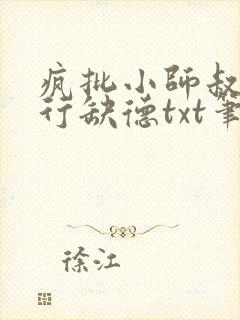 疯批小师叔
行缺德txt笔
徐江